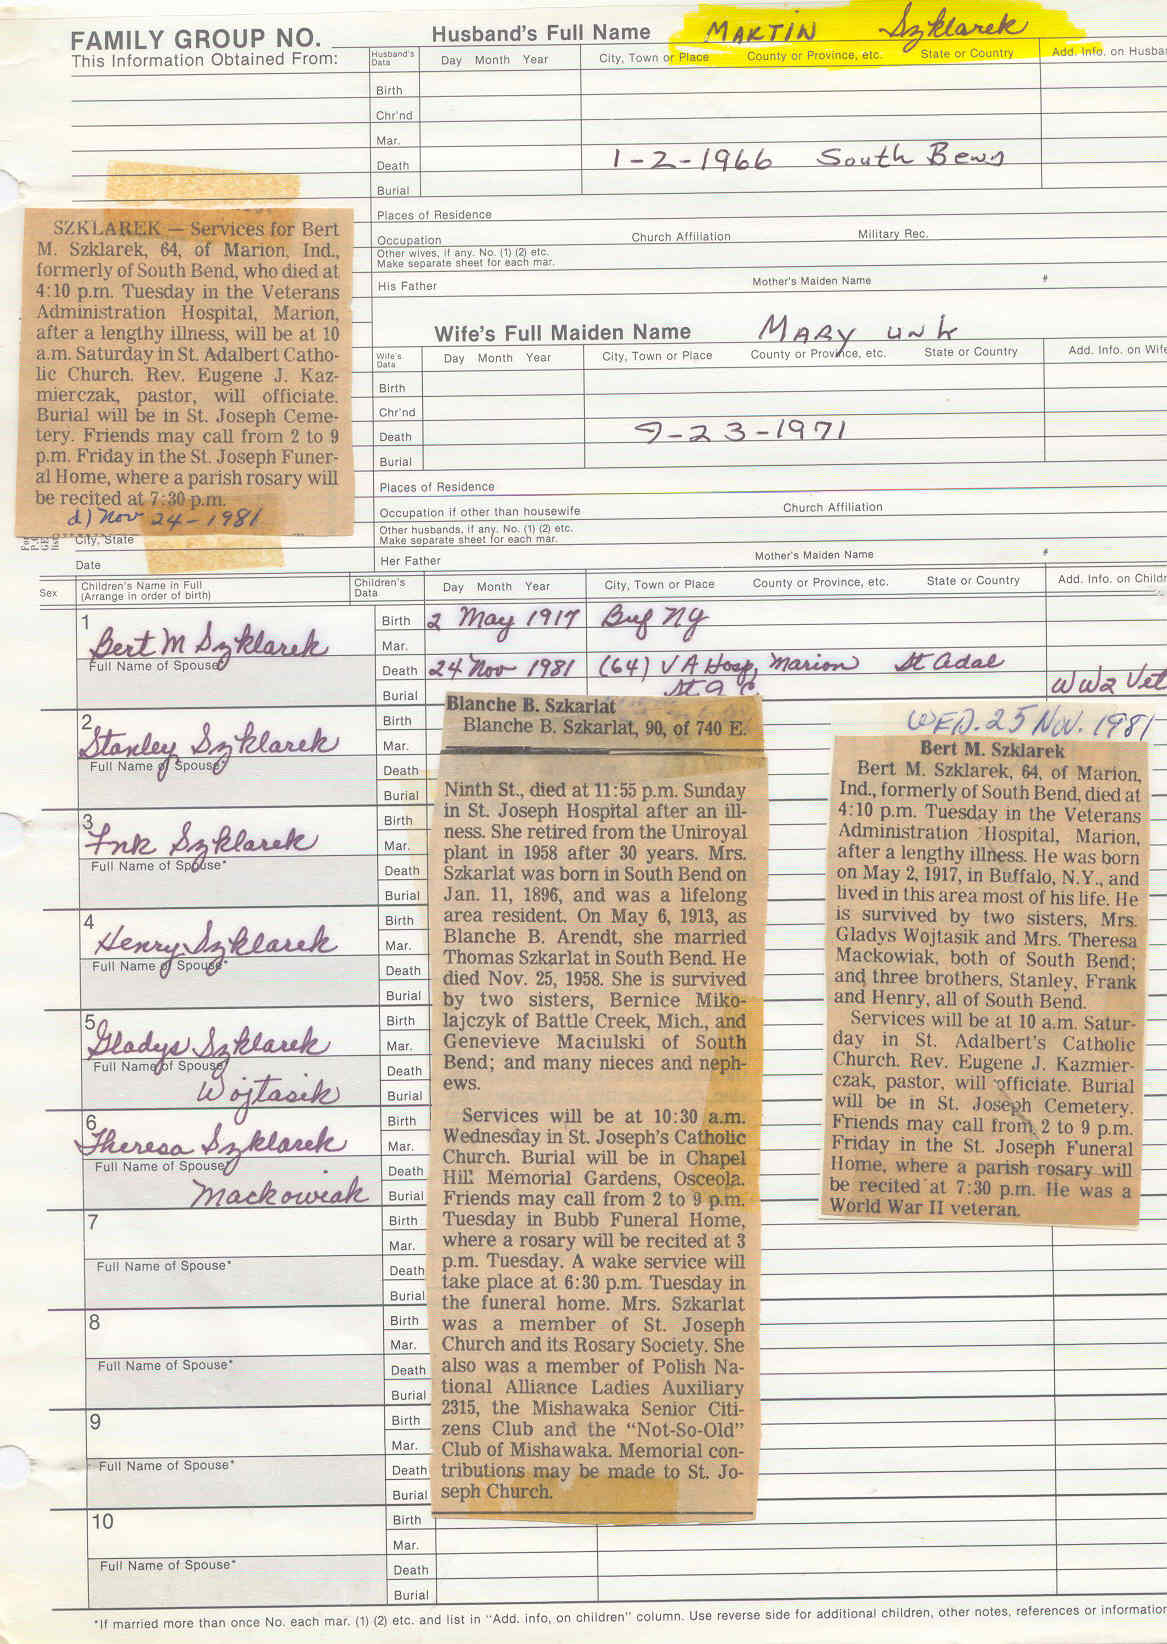 FAMILY GROUP NO.
This Information Obtained From:
Husband's Full Name MARTIN Szklarek
Husband's Data Day Month Year City, Town or Place County or Province, etc. State or Country Add. Info. on Husba
Birth
Chr'nd
Mar.
Death 1-2-1966 South Bend
Burial
Places of Residence
Occupation Church Affiliation Military Rec.
Other wives, if any. No. (1) (2) etc.
Make separate sheet for each mar.
His Father Mother's Maiden Name #
SZKLAREK — Services for Bert
M. Szklarek, 64, of Marion, Ind.,
formerly of South Bend, who died at
4:10 p.m. Tuesday in the Veterans
Administration Hospital, Marion,
after a lengthy illness, will be at 10
a.m. Saturday in St. Adalbert Catho-
lic Church. Rev. Eugene J. Kaz-
mierczak, pastor, will officiate.
Burial will be in St. Joseph Ceme-
tery. Friends may call from 2 to 9
p.m. Friday in the St. Joseph Funer-
al Home, where a parish rosary will
be recited at 7:30 p.m.
d) Nov 24-1981
City, State
Date
Wife's Full Maiden Name MARY unk
Wife's Data Day Month Year City, Town or Place County or Province, etc. State or Country Add. Info. on Wife
Birth
Chr'nd
Death 9-23-1971
Burial
Places of Residence
Occupation if other than housewife Church Affiliation
Other husbands, if any. No. (1) (2) etc.
Make separate sheet for each mar.
Her Father Mother's Maiden Name #
Sex Children's Name in Full (Arrange in order of birth) Children's Data Day Month Year City, Town or Place County or Province, etc. State or Country Add. Info. on Childr
1 Bert M Szklarek
Full Name of Spouse
Birth 2 May 1917 Buf NY
Mar.
Death 24 Nov 1981 (64) VA Hosp, Marion St Adal
Burial WW2 Vet
2 Stanley Szklarek
Full Name of Spouse
Birth
Mar.
Death
Burial
3 Fnk Szklarek
Full Name of Spouse*
Birth
Mar.
Death
Burial
4 Henry Szklarek
Full Name of Spouse*
Birth
Mar.
Death
Burial
5 Gladys Szklarek
Full Name of Spouse
Wojtasik
Birth
Mar.
Death
Burial
6 Theresa Szklarek
Full Name of Spouse
Mackowiak
Birth
Mar.
Death
Burial
7
Full Name of Spouse*
Birth
Mar.
Death
Burial
8
Full Name of Spouse*
Birth
Mar.
Death
Burial
9
Full Name of Spouse*
Birth
Mar.
Death
Burial
10
Full Name of Spouse*
Birth
Mar.
Death
Burial
Blanche B. Szkarlat
Blanche B. Szkarlat, 90, of 740 E.
Ninth St., died at 11:55 p.m. Sunday
in St. Joseph Hospital after an ill-
ness. She retired from the Uniroyal
plant in 1958 after 30 years. Mrs.
Szkarlat was born in South Bend on
Jan. 11, 1896, and was a lifelong
area resident. On May 6, 1913, as
Blanche B. Arendt, she married
Thomas Szkarlat in South Bend. He
died Nov. 25, 1958. She is survived
by two sisters, Bernice Miko-
lajczyk of Battle Creek, Mich., and
Genevieve Maciulski of South
Bend; and many nieces and neph-
ews.
Services will be at 10:30 a.m.
Wednesday in St. Joseph's Catholic
Church. Burial will be in Chapel
Hill Memorial Gardens, Osceola.
Friends may call from 2 to 9 p.m.
Tuesday in Bubb Funeral Home,
where a rosary will be recited at 3
p.m. Tuesday. A wake service will
take place at 6:30 p.m. Tuesday in
the funeral home. Mrs. Szkarlat
was a member of St. Joseph
Church and its Rosary Society. She
also was a member of Polish Na-
tional Alliance Ladies Auxiliary
2315, the Mishawaka Senior Citi-
zens Club and the "Not-So-Old"
Club of Mishawaka. Memorial con-
tributions may be made to St. Jo-
seph Church.
WED. 25 NOV. 1981
Bert M. Szklarek
Bert M. Szklarek, 64, of Marion,
Ind., formerly of South Bend, died at
4:10 p.m. Tuesday in the Veterans
Administration Hospital, Marion,
after a lengthy illness. He was born
on May 2, 1917, in Buffalo, N.Y., and
lived in this area most of his life. He
is survived by two sisters, Mrs.
Gladys Wojtasik and Mrs. Theresa
Mackowiak, both of South Bend;
and three brothers, Stanley, Frank
and Henry, all of South Bend.
Services will be at 10 a.m. Satur-
day in St. Adalbert's Catholic
Church. Rev. Eugene J. Kazmier-
czak, pastor, will officiate. Burial
will be in St. Joseph Cemetery.
Friends may call from 2 to 9 p.m.
Friday in the St. Joseph Funeral
Home, where a parish rosary will
be recited at 7:30 p.m. He was a
World War II veteran.
*If married more than once No. each mar. (1) (2) etc. and list in "Add. info, on children" column. Use reverse side for additional children, other notes, references or information